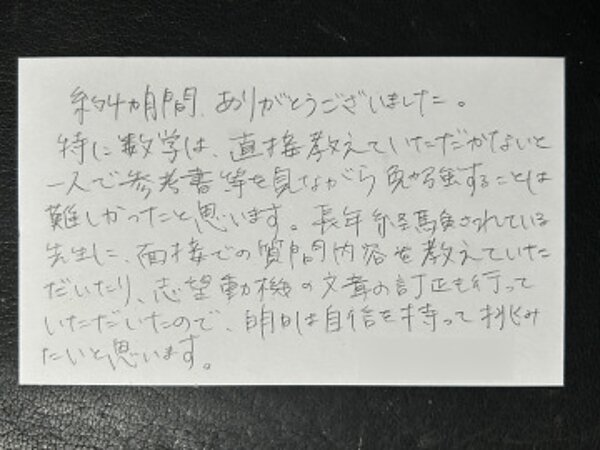 約4ヵ月間、ありがとうございました。
特に数学は、直接教えていただかないと
一人で参考書等を見ながら勉強することは
難しかったと思います。長年経験されている
先生に、面接での質問内容を教えていた
だいたり、志望動機の文章の訂正も行って
いただいたので、明日は自信を持って挑み
たいと思います。